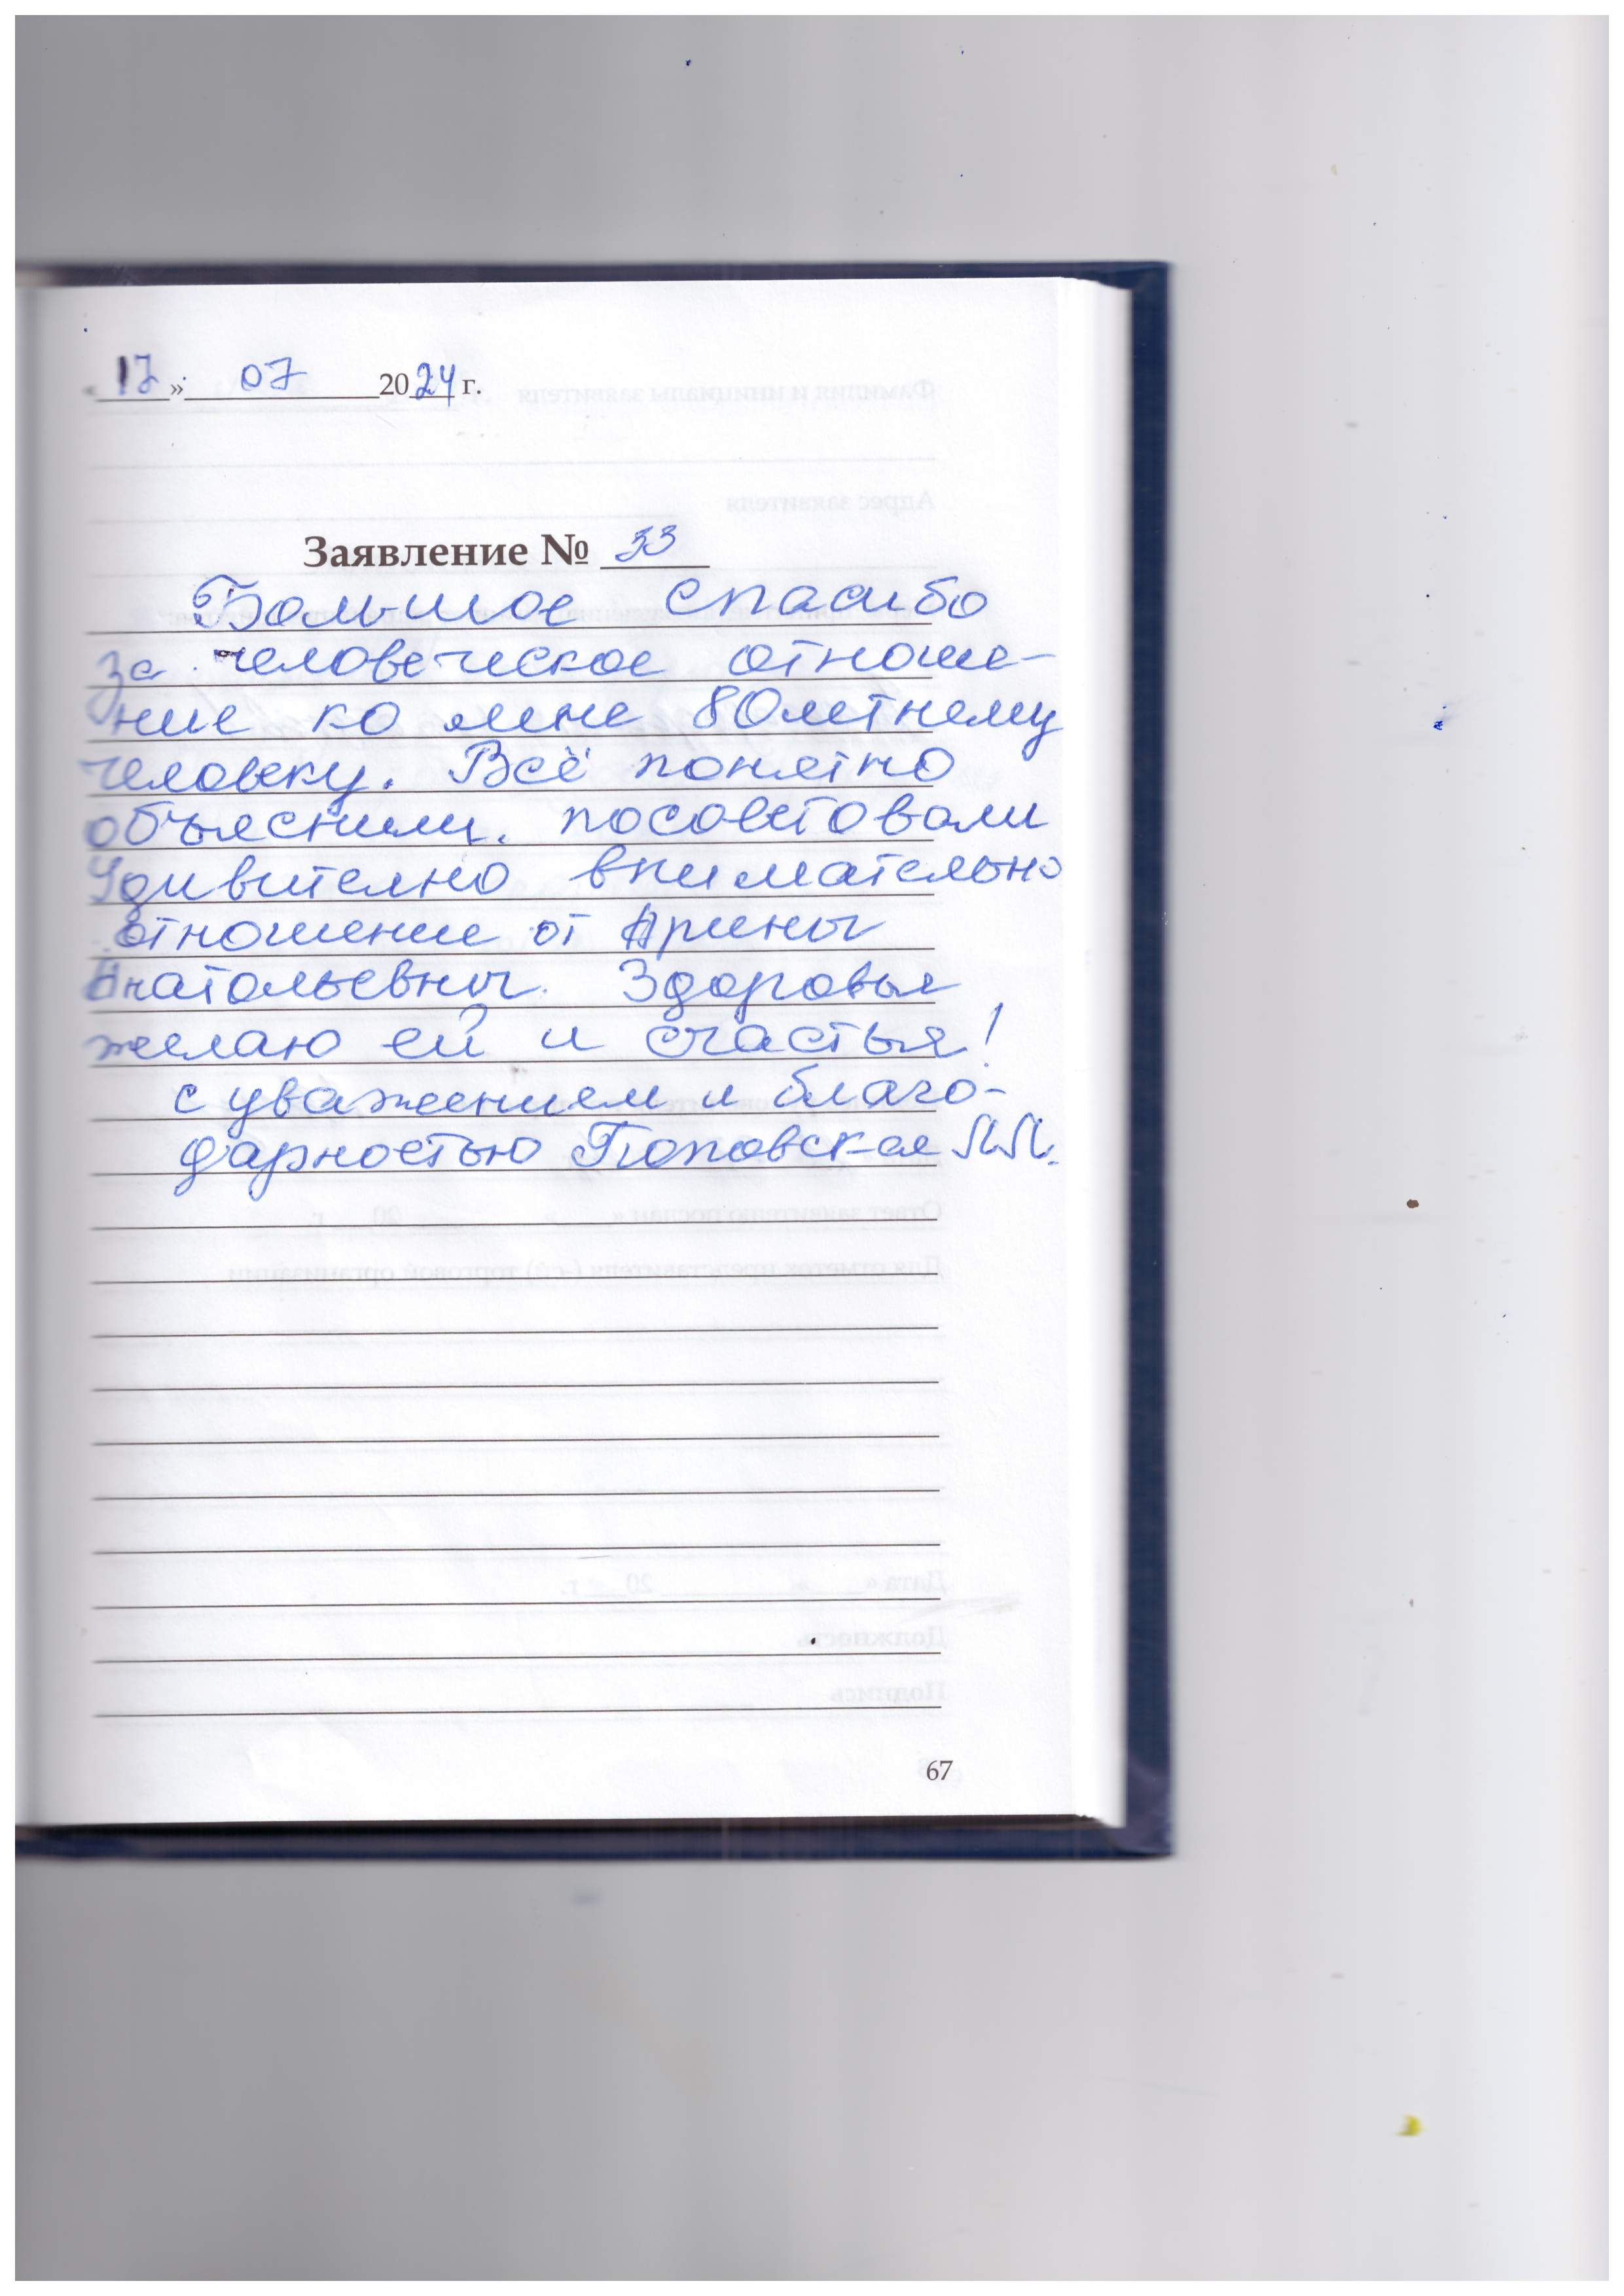 «17» 07 2024 г.
Заявление № 33
Большое спасибо
за человеческое отноше-
ние ко мне 80летнему
человеку. Всё понятно
объяснили. посоветовали
Удивително внимательно
отношение от Арины
Анатольевны. Здоровья
желаю ей и счастья!
с уважением и благо-
дарностью Поповская Л.Л.
67